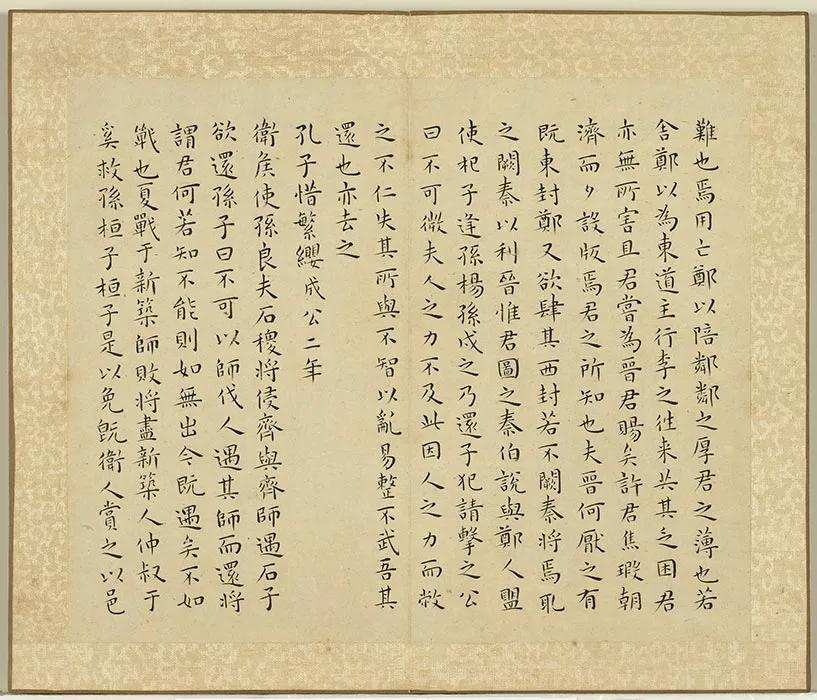 難也焉用亡鄭以陪鄰鄰之厚君之薄也若
舍鄭以為東道主行李之往来共其乏困君
亦無所害且君嘗為晉君賜矣許君焦瑕朝
濟而夕設版焉君之所知也夫晉何厭之有
既東封鄭又欲肆其西封若不闕秦将焉取
之闕秦以利晉惟君圖之秦伯說與鄭人盟
使杞子逢孫楊孫戍之乃還子犯請擊之公
曰不可微夫人之力不及此因人之力而敝
之不仁失其所與不智以亂易整不武吾其
還也亦去之
孔子惜繁纓成公二年
衛矦使孫良夫石稷将侵齊與齊師遇石子
欲還孫子曰不可以師伐人遇其師而還将
謂君何若知不能則如無出今既遇矣不如
戰也夏戰于新築師敗将盡新築人仲叔于
奚救孫桓子桓子是以免既衛人賞之以邑